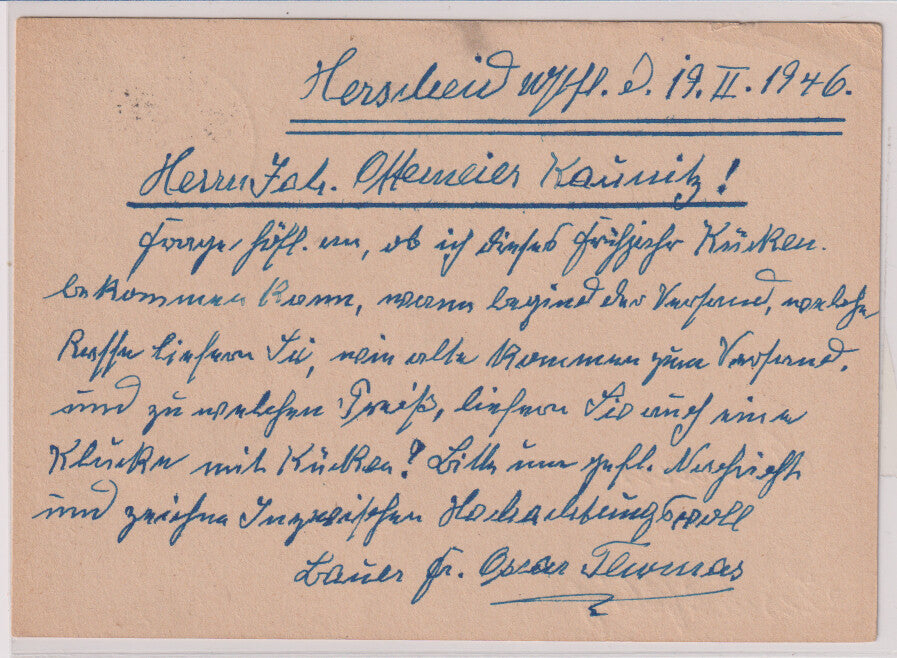 Herscheid Wstfl. d. 19. II. 1946.
Herrn Joh. Ottemeier Kaunitz!
Frage höfl. an, ob ich dieses Frühjahr Kücken.
bekommen kann, wann begind der Versand, welche
Rasse liefern Sie, wie alte kommen zum Versand.
und zu welchen Preiß, liefern Sie auch eine
Klucke mit Kücken? Bitte um gefl. Nachricht
und zeichne Inzwischen Hochachtungsvoll
Bauer Fr. Oscar Thomas